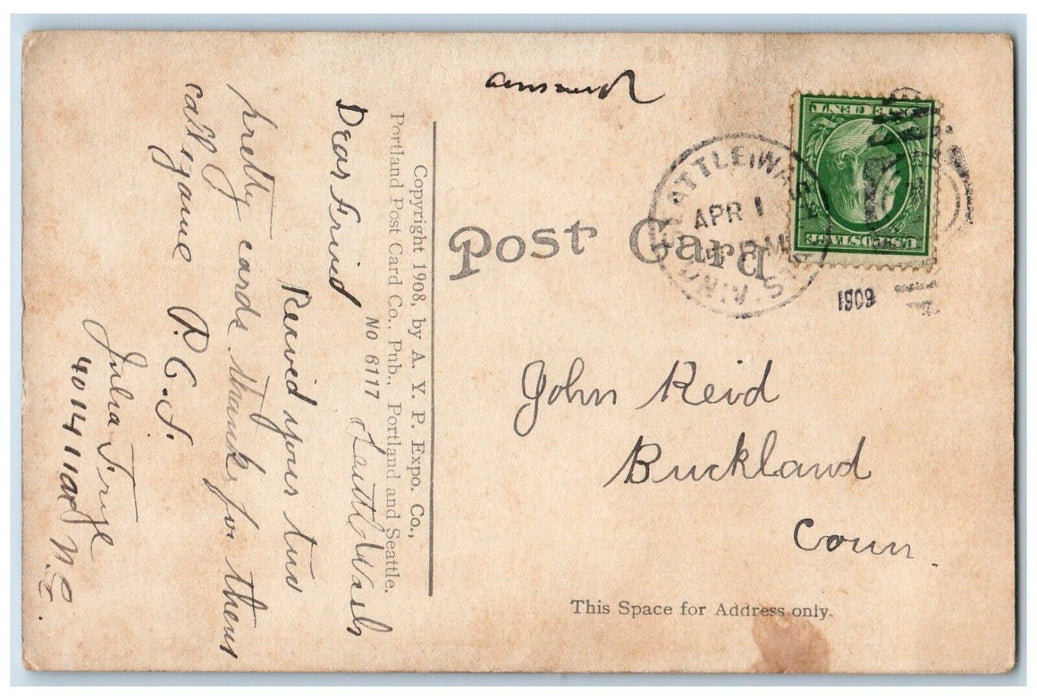 answerd
Post Card
SEATTLE, WASH.
APR 1
1909
ONE CENT
U.S. POSTAGE
Copyright 1908, by A. Y. P. Expo. Co.,
Portland Post Card Co., Pub., Portland and Seattle.
No 6117
Seattle Wash
Dear Frind
Recived yours two
pretty cards. thanks for them
call again P.C.S.
Julia
4014 11 av N.E.
John Reid
Buckland
Conn.
This Space for Address only.